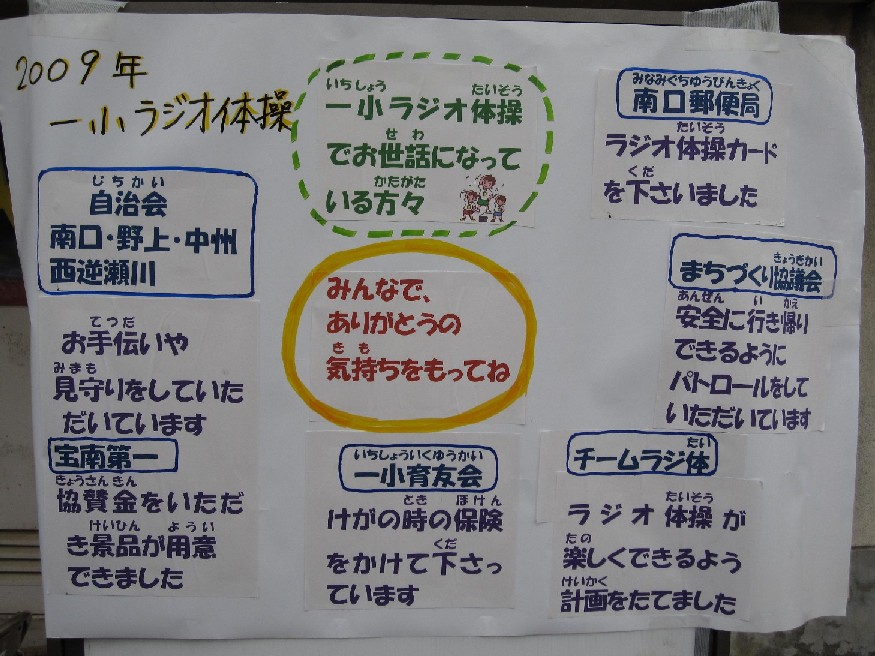 2009年
一小ラジオ体操
いちしょう たいそう
一小ラジオ体操
せわ
でお世話になって
かたがた
いる方々
みなみぐちゆうびんきょく
南口郵便局
たいそう
ラジオ体操カード
くだ
を下さいました
じちかい
自治会
南口・野上・中州
西逆瀬川
てつだ
お手伝いや
みまも
見守りをしていた
だいています
みんなで、
ありがとうの
きも
気持ちをもってね
きょうぎかい
まちづくり協議会
あんぜん い かえ
安全に行き帰り
できるように
パトロールをして
いただいています
宝南第一
きょうさんきん
協賛金をいただ
けいひん ようい
き景品が用意
できました
いちしょういくゆうかい
一小育友会
とき ほけん
けがの時の保険
くだ
をかけて下さっ
ています
たい
チームラジ体
たいそう
ラジオ体操が
たの
楽しくできるよう
けいかく
計画をたてました